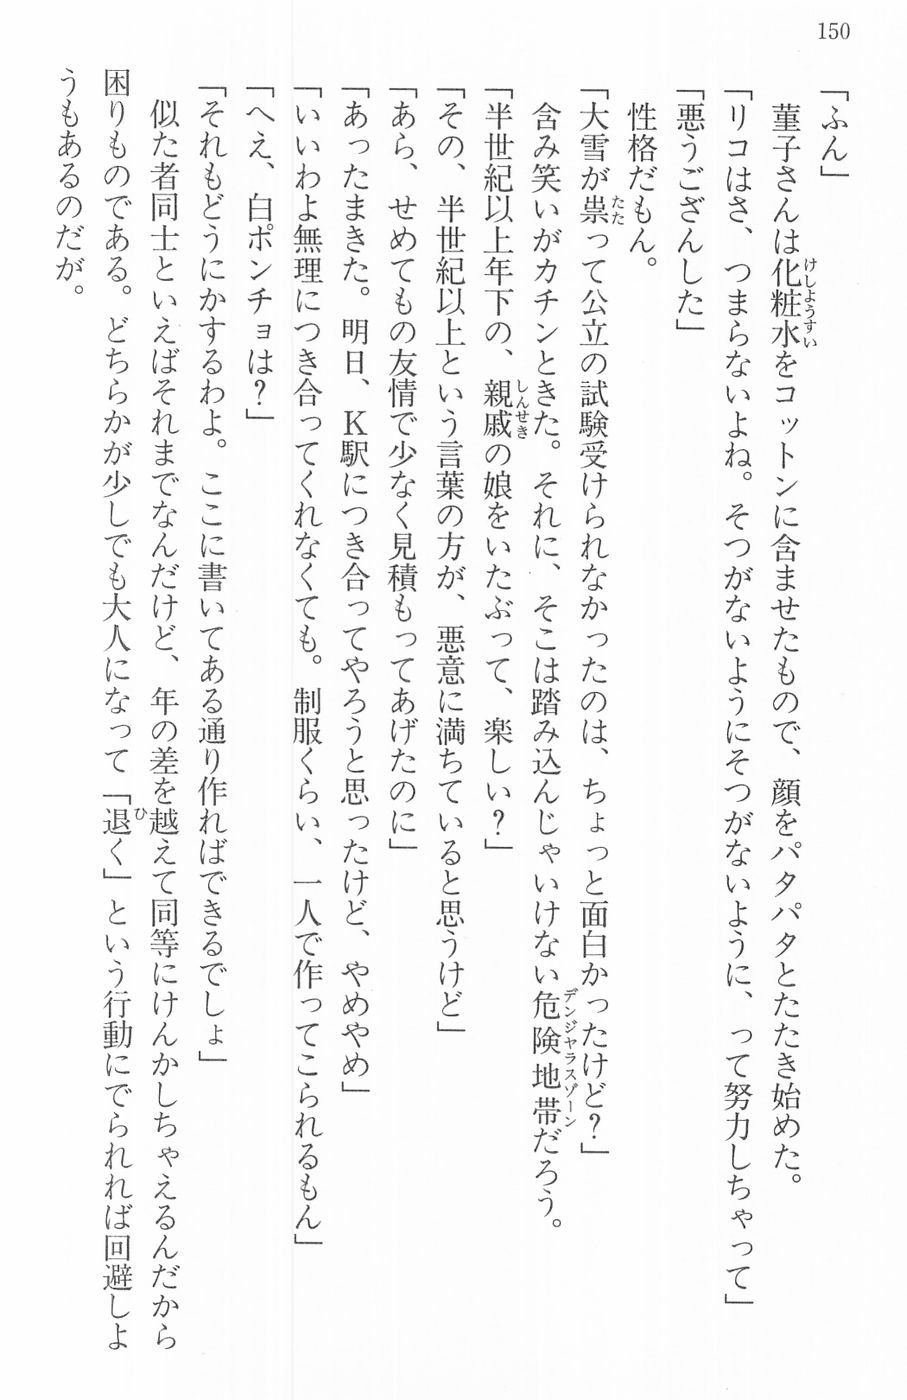 150
「ふん」
菫子さんは化粧水をコットンに含ませたもので、顔をパタパタとたたき始めた。
「リコはさ、つまらないよね。そつがないようにそつがないように、って努力しちゃって」
「悪うござんした」
性格だもん。
「大雪が祟って公立の試験受けられなかったのは、ちょっと面白かったけど？」
含み笑いがカチンときた。それに、そこは踏み込んじゃいけない危険地帯だろう。
「半世紀以上年下の、親戚の娘をいたぶって、楽しい？」
「その、半世紀以上という言葉の方が、悪意に満ちていると思うけど」
「あら、せめてもの友情で少なく見積もってあげたのに」
「あったまきた。明日、Ｋ駅につき合ってやろうと思ったけど、やめやめ」
「いいわよ無理につき合ってくれなくても。制服くらい、一人で作ってこられるもん」
「へえ、白ポンチョは？」
「それもどうにかするわよ。ここに書いてある通り作ればできるでしょ」
似た者同士といえばそれまでなんだけど、年の差を越えて同等にけんかしちゃえるんだから
困りものである。どちらかが少しでも大人になって「退く」という行動にでられれば回避しよ
うもあるのだが。
けしようすい
たた
デンジヤラスゾーン
しんせき
ひ